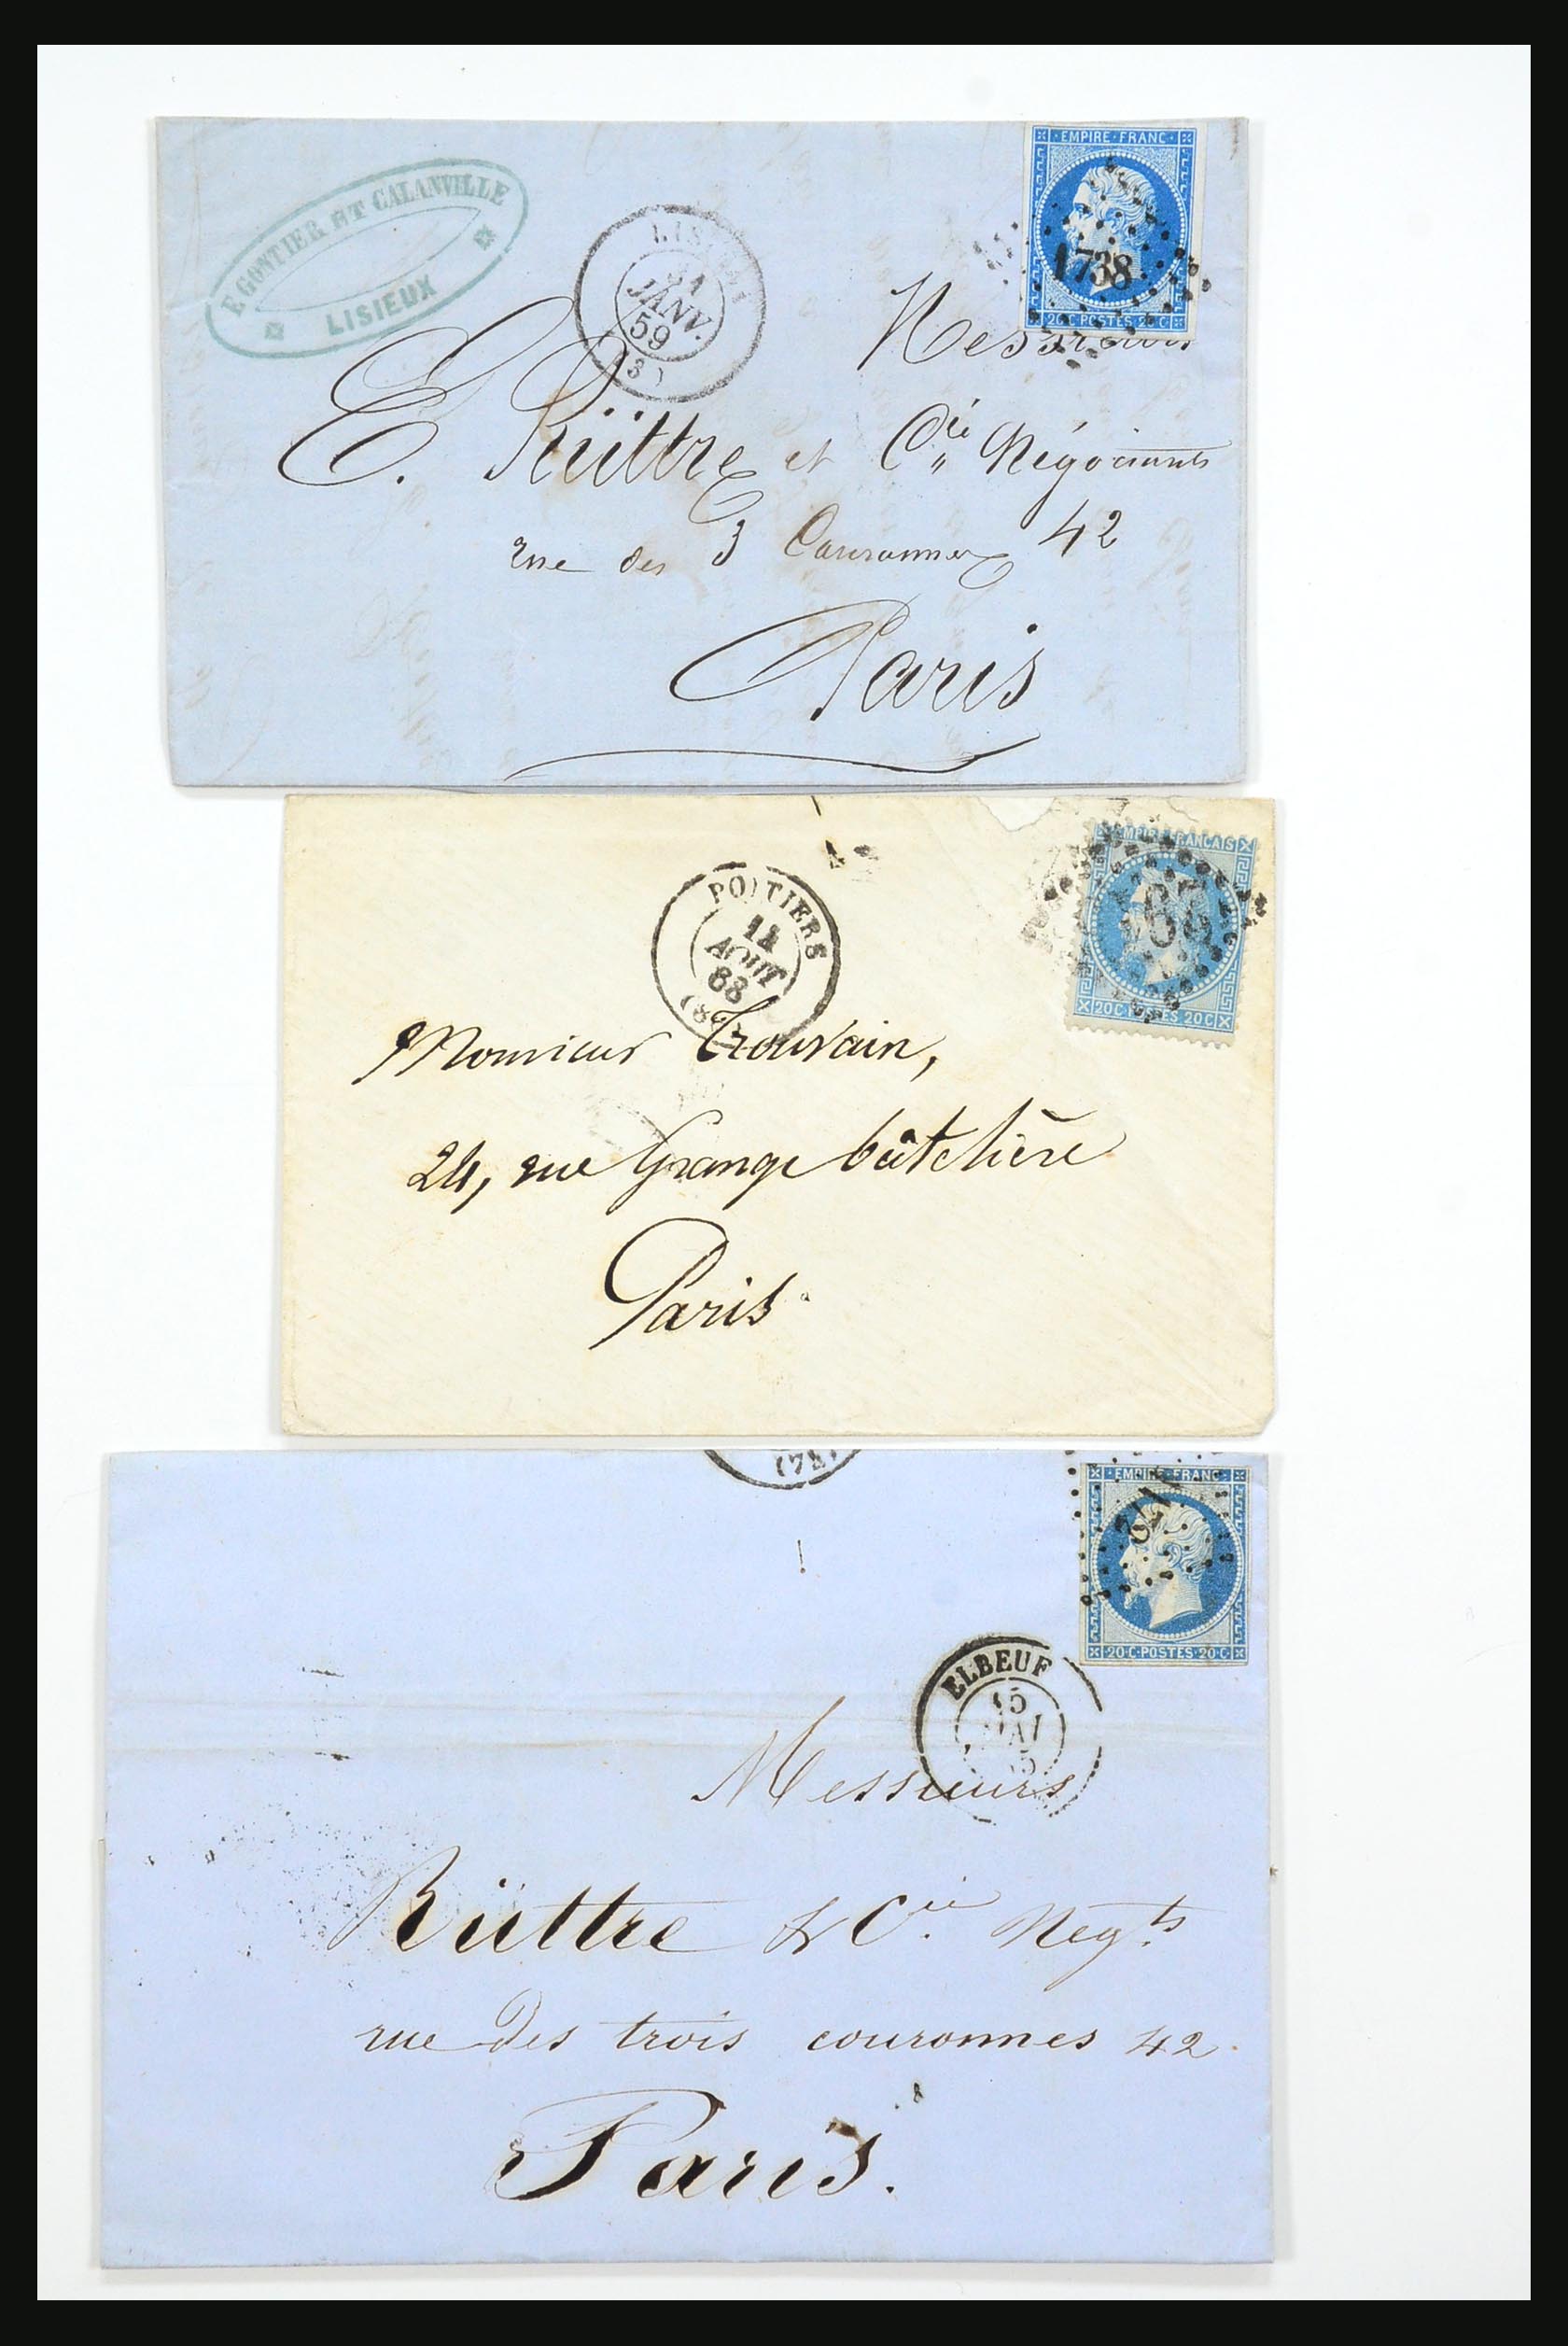 E GONTIER ET CALANVILLE
LISIEUX
LISIEUX
JANV.
59
(3)
EMPIRE FRANC
1738
20 C POSTES 20 C
Messieurs
E. Rüttre et Cie Négociants
rue des 3 Couronnes 42
Paris
POITIERS
11
AOUT
68
EMPIRE FRANÇAIS
20 C POSTES 20 C
Monsieur Trouvain,
24, rue Grange batelière
Paris
EMPIRE FRANC
20 C POSTES 20 C
ELBEUF
15
MAI
Messieurs
Rüttre & Cie Negts
rue des trois couronnes 42.
Paris.